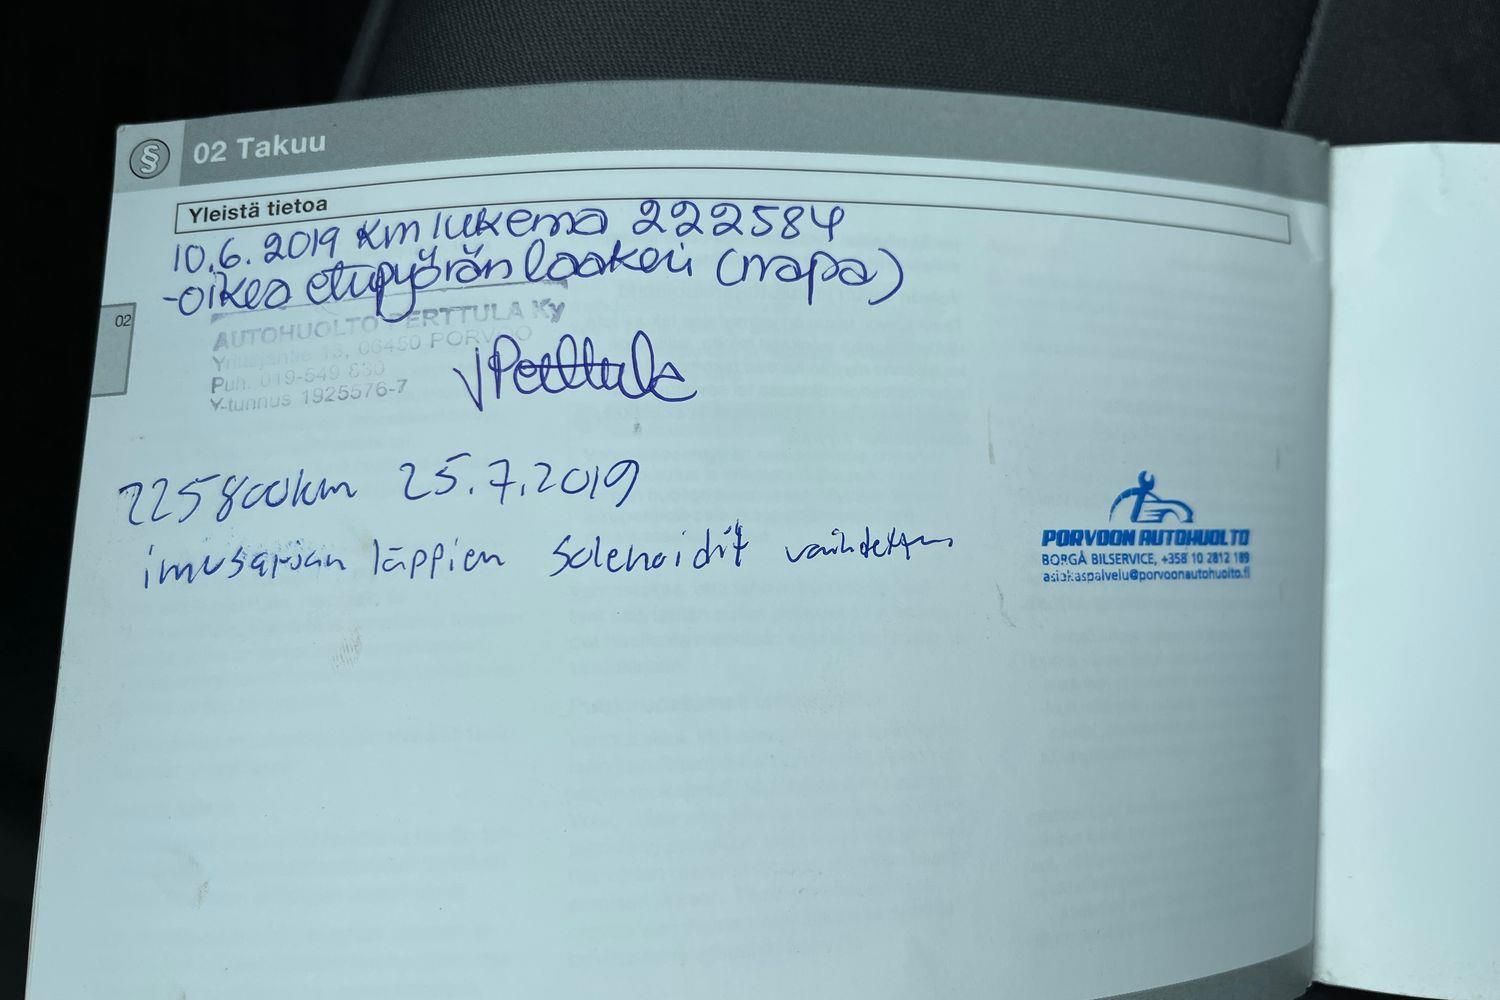 § 02 Takuu
Yleistä tietoa
10.6.2019 km lukema 222584
-oikea etupyörän laakeri (napa)
02
AUTOHUOLTO PERTTULA Ky
Yrittäjäntie 13, 06450 PORVOO
Puh. 019-549 830
Y-tunnus 1925576-7
JPerttula
225800km 25.7.2019
imusarjan läppien solenoidit vaihdettu
PORVOON AUTOHUOLTO
BORGÅ BILSERVICE, +358 10 2812 189
asiakaspalvelu@porvoonautohuolto.fi